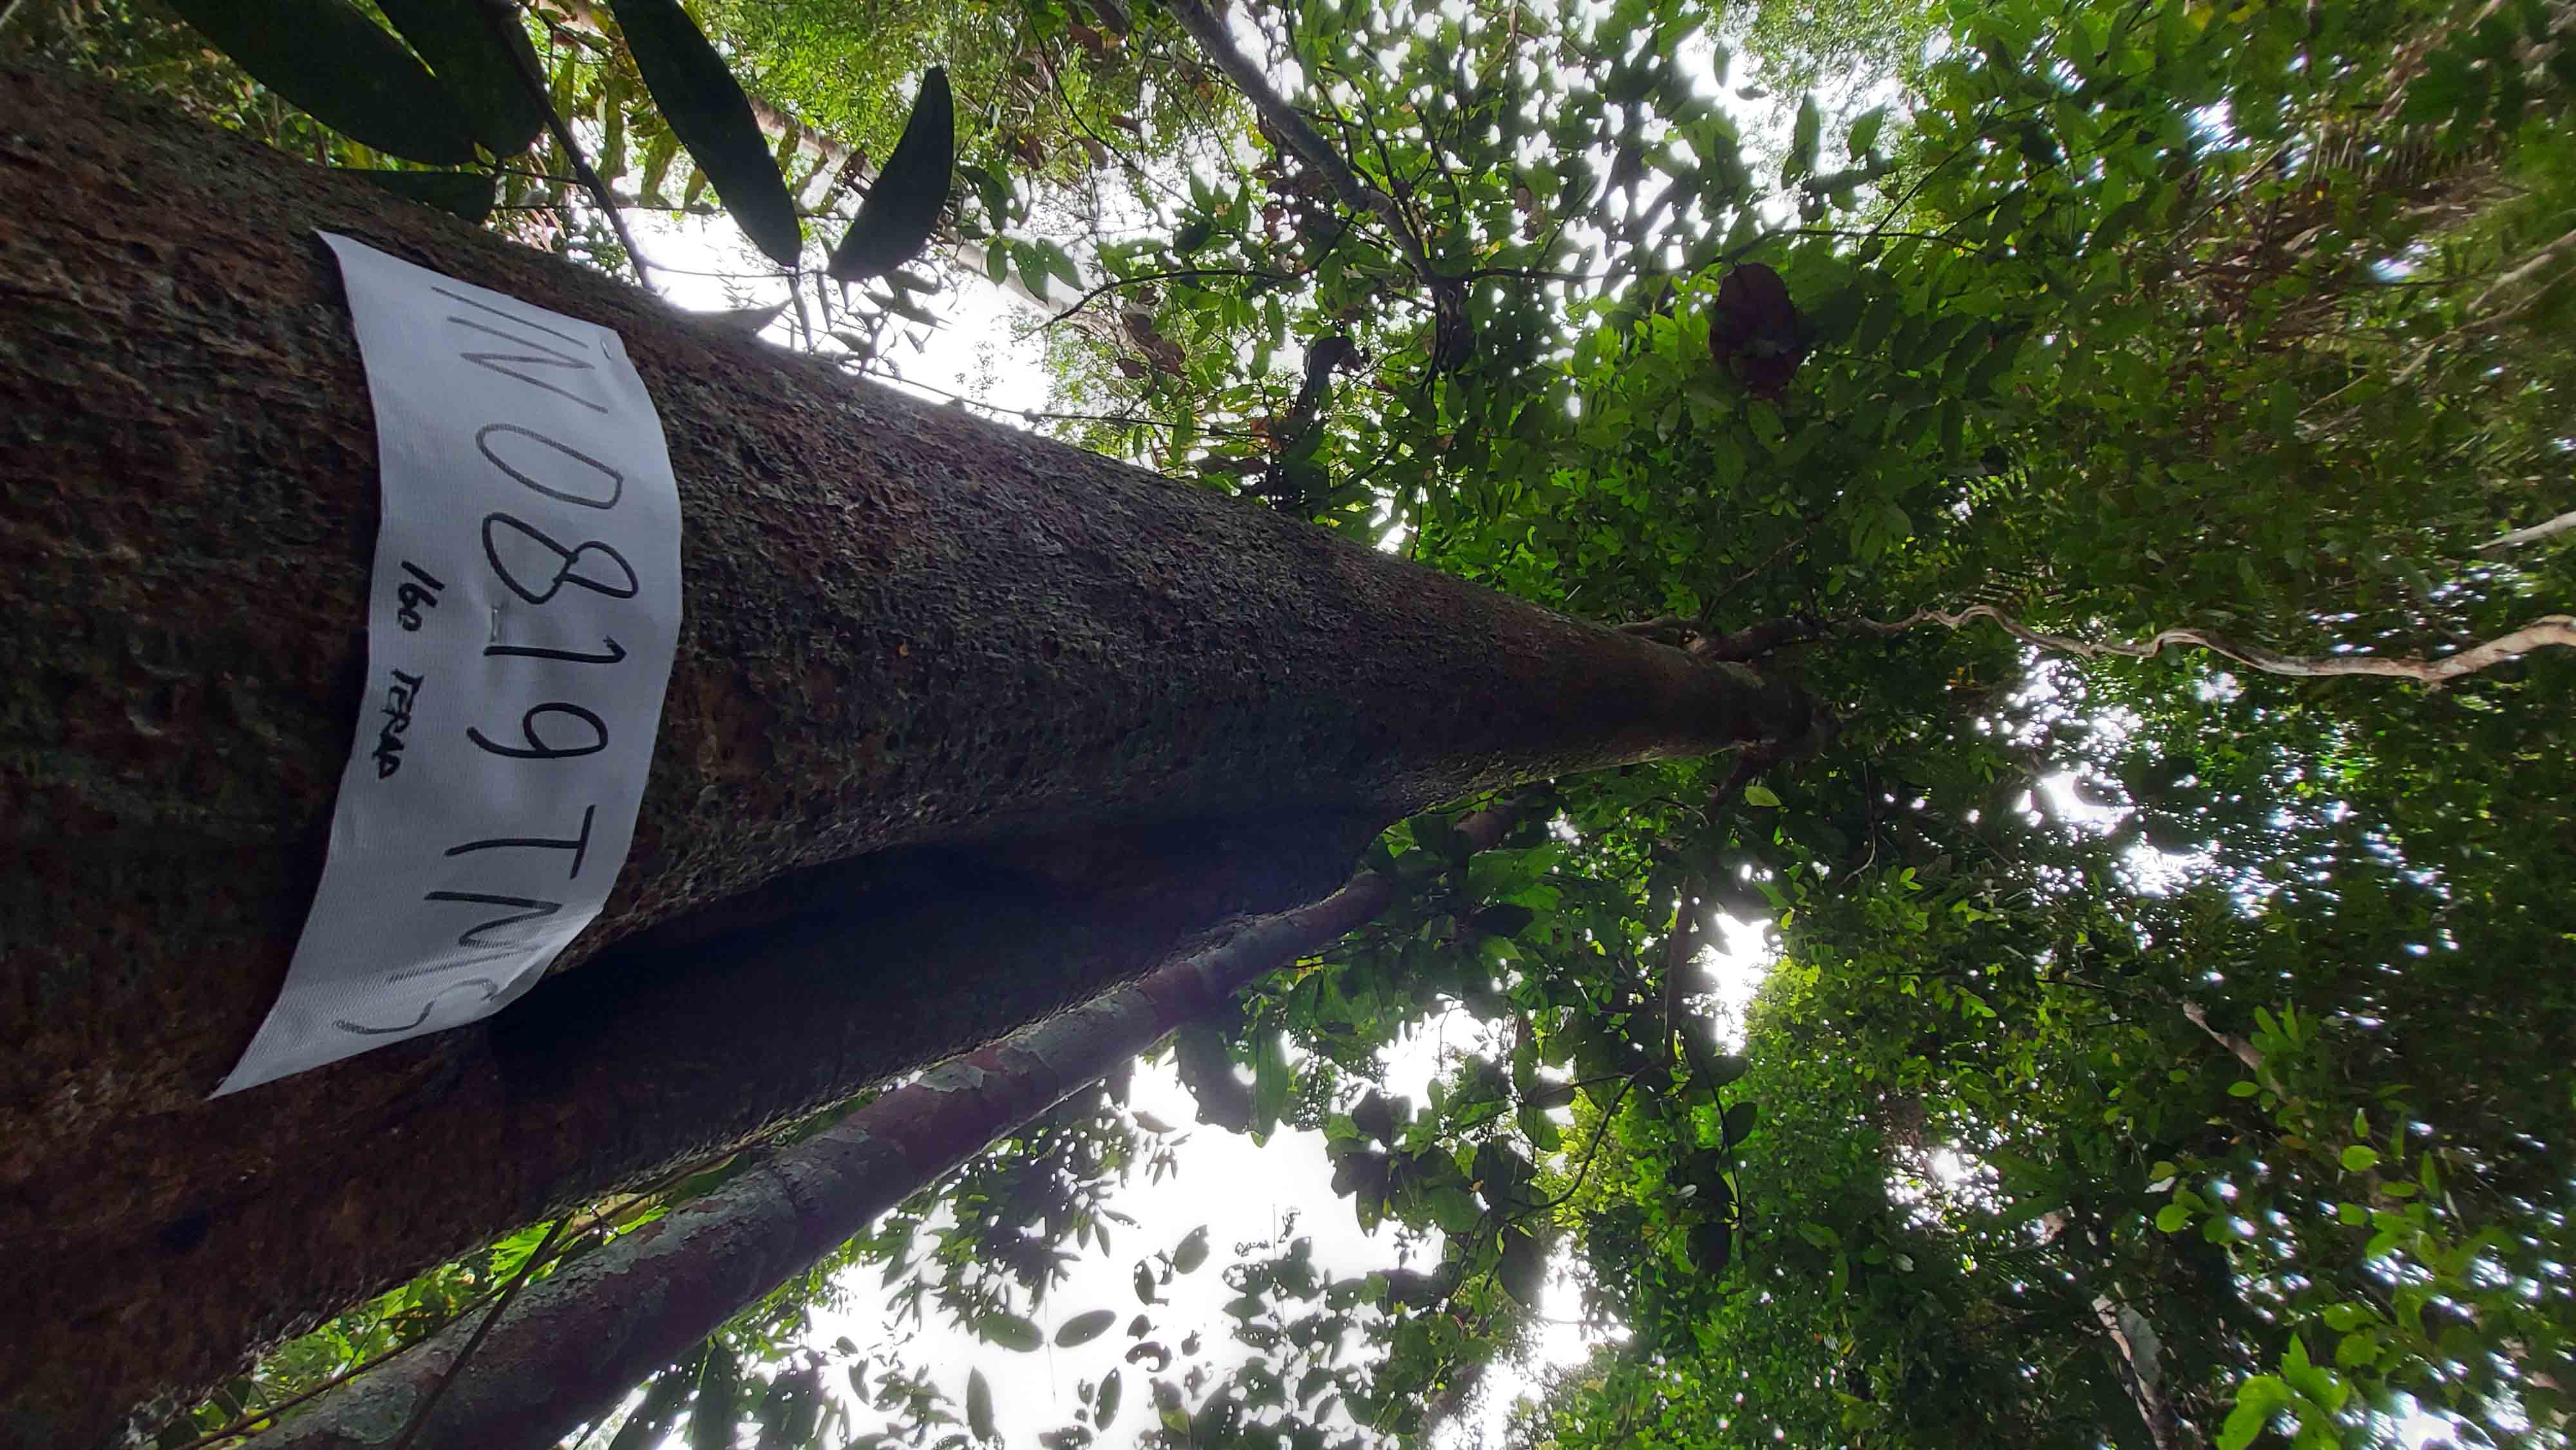 IN 0819 TMS
160 TERAP